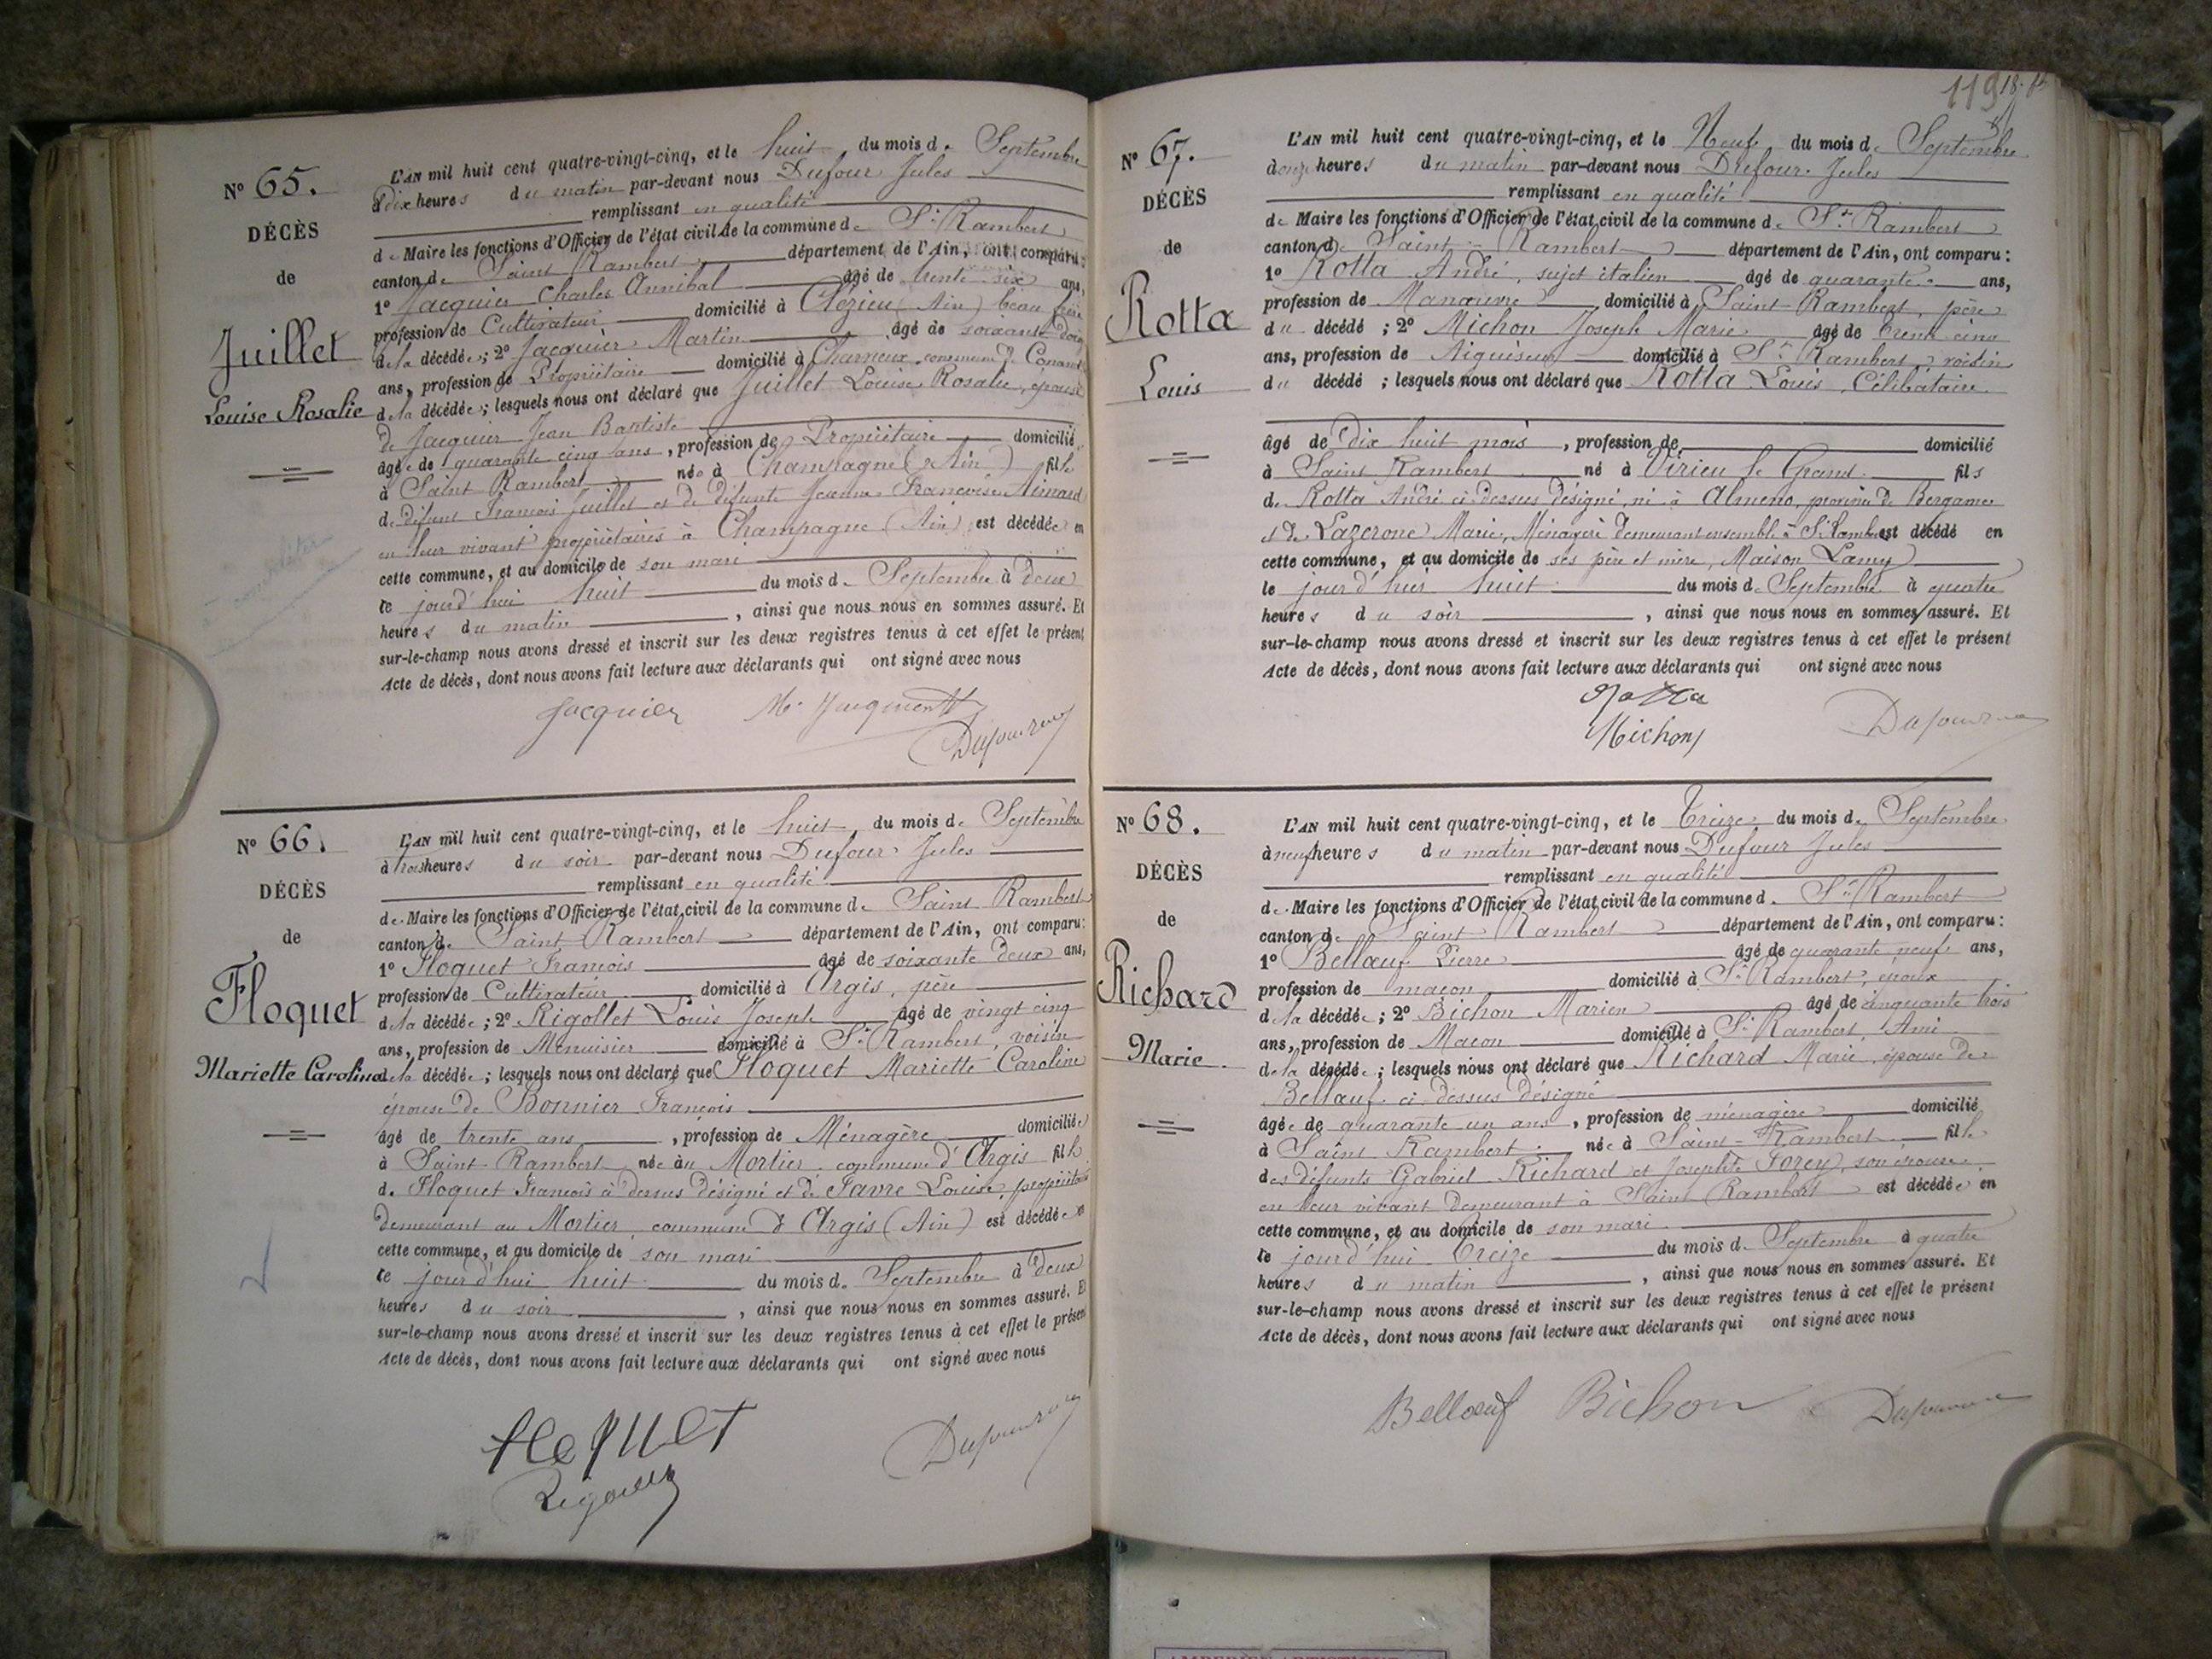 Nº 65.
DÉCÈS
de
Juillet
Louise Rosalie
L'AN mil huit cent quatre-vingt-cinq, et le huit du mois de Septembre
à dix heures du matin par-devant nous Dufour Jules
remplissant en qualité
de Maire les fonctions d'Officier de l'état civil de la commune de St Rambert
canton de Saint Rambert département de l'Ain, ont comparu:
1º Jacquier Charles Annibal âgé de trente six ans,
profession de Cultivateur domicilié à (Ain) beau frère
de la décédée; 2º Jacquier Martin âgé de soixante
ans, profession de Propriétaire domicilié à Charveux commune de Conand
de la décédée; lesquels nous ont déclaré que Juillet Louise Rosalie, épouse
de Jacquier Jean Baptiste
âgée de quarante cinq ans, profession de Propriétaire domicilié
à Saint Rambert née à Champagne (Ain) fille
de défunt François Juillet et de défunte Françoise
en leur vivant propriétaires à Champagne (Ain) est décédée en
cette commune, et au domicile de son mari
le jourd'hui huit du mois de Septembre à deux
heures du matin, ainsi que nous nous en sommes assuré. Et
sur-le-champ nous avons dressé et inscrit sur les deux registres tenus à cet effet le présent
Acte de décès, dont nous avons fait lecture aux déclarants qui ont signé avec nous
Jacquier
Dufour
Nº 66.
DÉCÈS
de
Floquet
Mariette Caroline
L'AN mil huit cent quatre-vingt-cinq, et le huit du mois de Septembre
à trois heures du soir par-devant nous Dufour Jules
remplissant en qualité
de Maire les fonctions d'Officier de l'état civil de la commune de Saint Rambert
canton de Saint Rambert département de l'Ain, ont comparu:
1º Floquet François âgé de soixante deux ans,
profession de Cultivateur domicilié à Argis, père
de la décédée; 2º Rigollet Louis Joseph âgé de vingt cinq
ans, profession de Menuisier domicilié à St Rambert, voisin
de la décédée; lesquels nous ont déclaré que Floquet Mariette Caroline
épouse de Bonnier François
âgé de trente ans, profession de Ménagère domiciliée
à Saint-Rambert née au Mortier commune d'Argis fille
de Floquet François ci dessus désigné et de Favre Louise, propriétaires
demeurant au Mortier commune d'Argis (Ain) est décédée en
cette commune, et au domicile de son mari
le jourd'hui huit du mois de Septembre à deux
heures du soir, ainsi que nous nous en sommes assuré. Et
sur-le-champ nous avons dressé et inscrit sur les deux registres tenus à cet effet le présent
Acte de décès, dont nous avons fait lecture aux déclarants qui ont signé avec nous
floquet
Rigollet
Dufour
119
Nº 67.
DÉCÈS
de
Rotta
Louis
L'AN mil huit cent quatre-vingt-cinq, et le Neuf du mois de Septembre
à onze heures du matin par-devant nous Dufour Jules
remplissant en qualité
de Maire les fonctions d'Officier de l'état civil de la commune de St Rambert
canton de Saint-Rambert département de l'Ain, ont comparu:
1º Rotta André, sujet italien âgé de quarante ans,
profession de Manœuvre domicilié à Saint-Rambert, père
du décédé; 2º Michon Joseph Marie âgé de trente cinq
ans, profession de Aiguiseur domicilié à St Rambert, voisin
du décédé; lesquels nous ont déclaré que Rotta Louis, Célibataire
âgé de dix huit mois, profession de domicilié
à Saint Rambert né à Virieu le Grand fils
de Rotta André ci-dessus désigné, né à Almeno, province de Bergame
et de Lazerone Marie, Ménagère demeurant ensemble à St Rambert est décédé en
cette commune, et au domicile de ses père et mère, Maison Lamy
le jourd'hier huit du mois de Septembre à quatre
heures du soir, ainsi que nous nous en sommes assuré. Et
sur-le-champ nous avons dressé et inscrit sur les deux registres tenus à cet effet le présent
Acte de décès, dont nous avons fait lecture aux déclarants qui ont signé avec nous
Rotta
Michon
Dufour
Nº 68.
DÉCÈS
de
Richard
Marie
L'AN mil huit cent quatre-vingt-cinq, et le Treize du mois de Septembre
à neuf heures du matin par-devant nous Dufour Jules
remplissant en qualité
de Maire les fonctions d'Officier de l'état civil de la commune de St Rambert
canton de Saint Rambert département de l'Ain, ont comparu:
1º Bellœuf Pierre âgé de quarante neuf ans,
profession de maçon domicilié à St Rambert, époux
de la décédée; 2º Bichon Marien âgé de cinquante trois
ans, profession de Maçon domicilié à St Rambert, Ami
de la décédée; lesquels nous ont déclaré que Richard Marie, épouse de
Bellœuf ci-dessus désigné
âgée de quarante un ans, profession de ménagère domicilié
à Saint Rambert née à Saint-Rambert fille
des défunts Gabriel Richard et Josephte Forey, son épouse
en leur vivant demeurant à Saint Rambert est décédée en
cette commune, et au domicile de son mari
le jourd'hui Treize du mois de Septembre à quatre
heures du matin, ainsi que nous nous en sommes assuré. Et
sur-le-champ nous avons dressé et inscrit sur les deux registres tenus à cet effet le présent
Acte de décès, dont nous avons fait lecture aux déclarants qui ont signé avec nous
Bellœuf Bichon Dufour